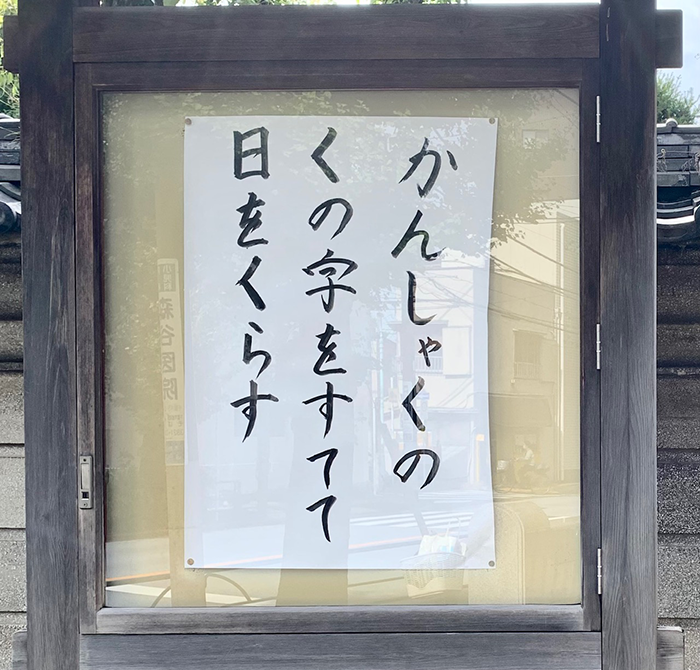 かんしゃくの
くの字をすてて
日をくらす